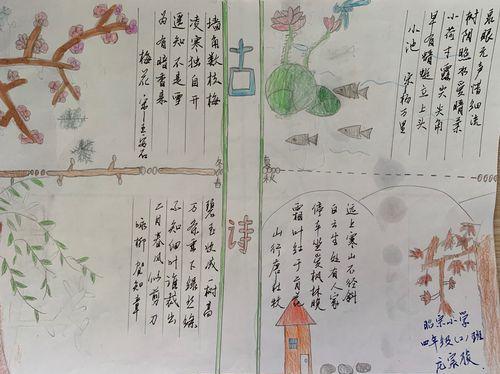 古诗
墙角数枝梅
凌寒独自开
遥知不是雪
为有暗香来
梅花 宋王安石
泉眼无声惜细流
树阴照水爱晴柔
小荷才露尖尖角
早有蜻蜓立上头
小池 宋杨万里
冬
春
夏
秋
碧玉妆成一树高
万条垂下绿丝绦
不知细叶谁裁出
二月春风似剪刀
咏柳 贺知章
远上寒山石径斜
白云生处有人家
停车坐爱枫林晚
霜叶红于二月花
山行 唐 杜牧
小学
四年级(2)班